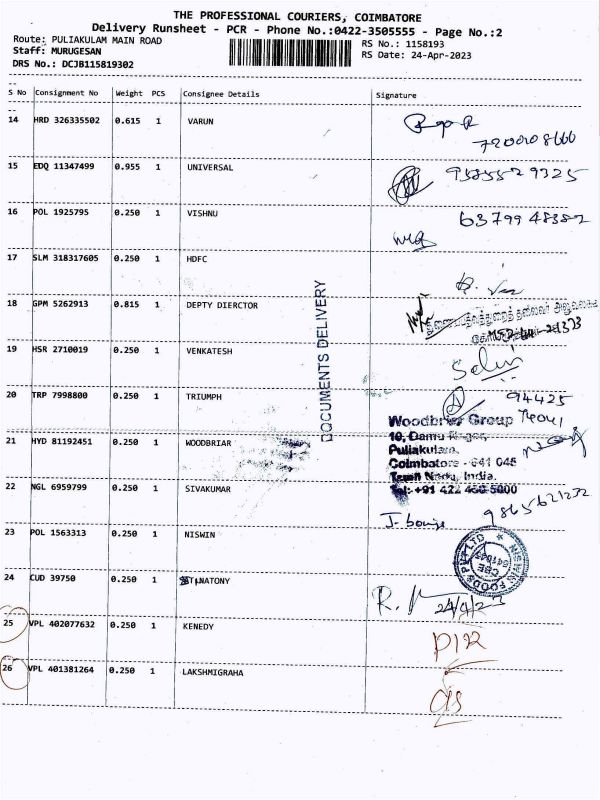 THE PROFESSIONAL COURIERS, COIMBATORE
Delivery Runsheet - PCR - Phone No.:0422-3505555 - Page No.:2
Route: PULIAKULAM MAIN ROAD
RS No.: 1158193
Staff: MURUGESAN
RS Date: 24-Apr-2023
DRS No.: DCJB115819302
S No Consignment No Weight PCS Consignee Details Signature
14 HRD 326335502 0.615 1 VARUN
15 EDQ 11347499 0.955 1 UNIVERSAL
16 POL 1925795 0.250 1 VISHNU
63799 48382
17 SLM 318317605 0.250 1 HDFC
18 GPM 5262913 0.815 1 DEPTY DIERCTOR
DOCUMENTS DELIVERY
19 HSR 2710019 0.250 1 VENKATESH
20 TRP 7998800 0.250 1 TRIUMPH
94425
21 HYD 81192451 0.250 1 WOODBRIAR
Woodbriar Group
10, Damu Nagar,
Puliakulam,
Coimbatore - 641 045
Tamil Nadu, India.
Tel: +91 422 430 5000
22 NGL 6959799 0.250 1 SIVAKUMAR
9865621232
23 POL 1563313 0.250 1 NISWIN
NISWIN FOODS PVT LTD
CBE
641045
24 CUD 39750 0.250 1 NATONY
24/4/23
25 VPL 402077632 0.250 1 KENEDY
26 VPL 401381264 0.250 1 LAKSHMIGRAHA